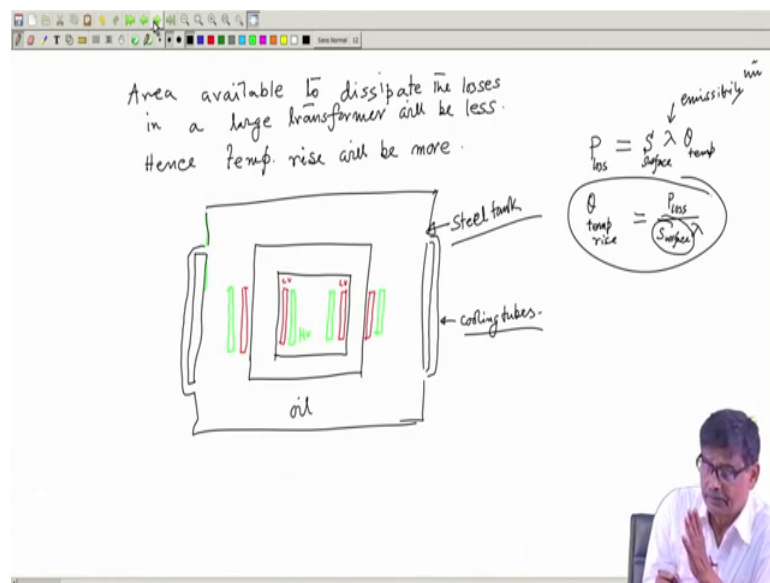 Sans Normal 12
Area available to dissipate the losses
in a large transformer will be less.
Hence temp. rise will be more.
emissibility
P loss = S surface λ θ temp
θ temp rise = P loss / Surface λ
Steel tank
LV LV
HV
cooling tubes.
oil